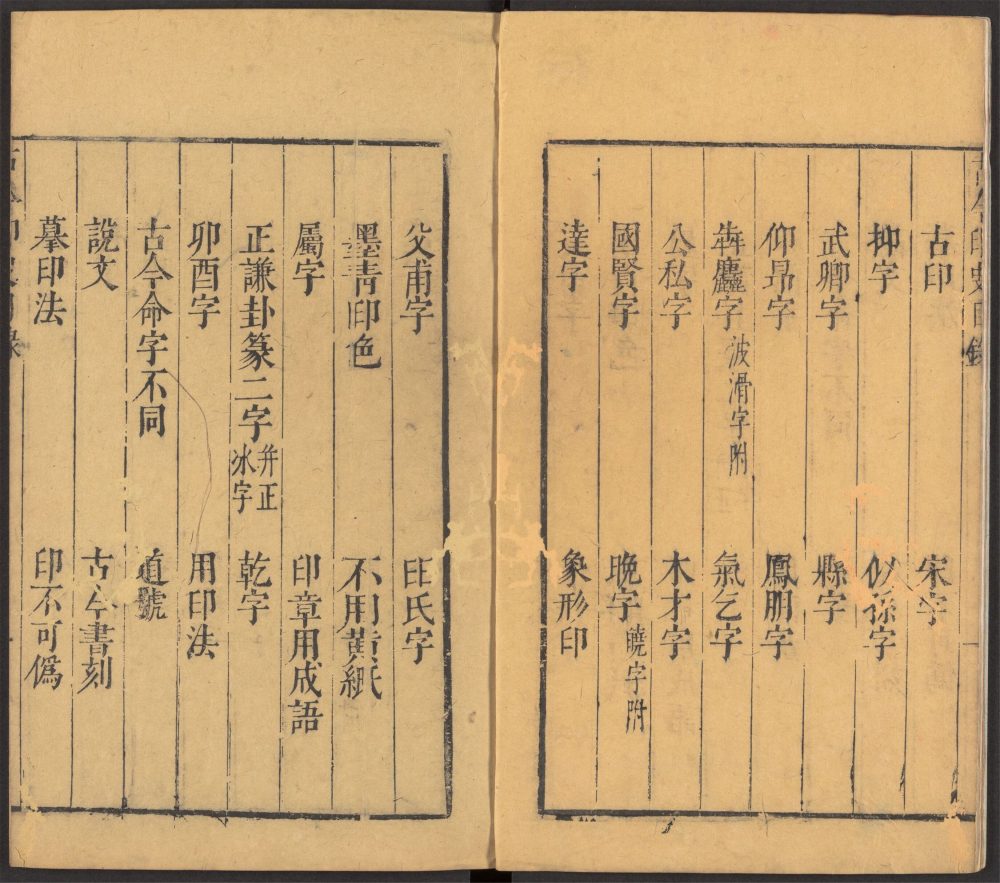 古今印史目錄
古印　宋字
抑字　似孫字
武卿字　縣字
仰昂字　鳳朋字
犇麤字　波滑字附　氣乞字
公私字　木才字
國賢字　晚字　曉字附
達字　象形印
父甫字　氏字
墨靑印色　不用黄紙
屬字　印章用成語
正謙卦篆二字　幷正冰字　乾字
卯酉字　用印法
古今命字不同　道號
說文　古今書刻
摹印法　印不可僞
古今印史目錄